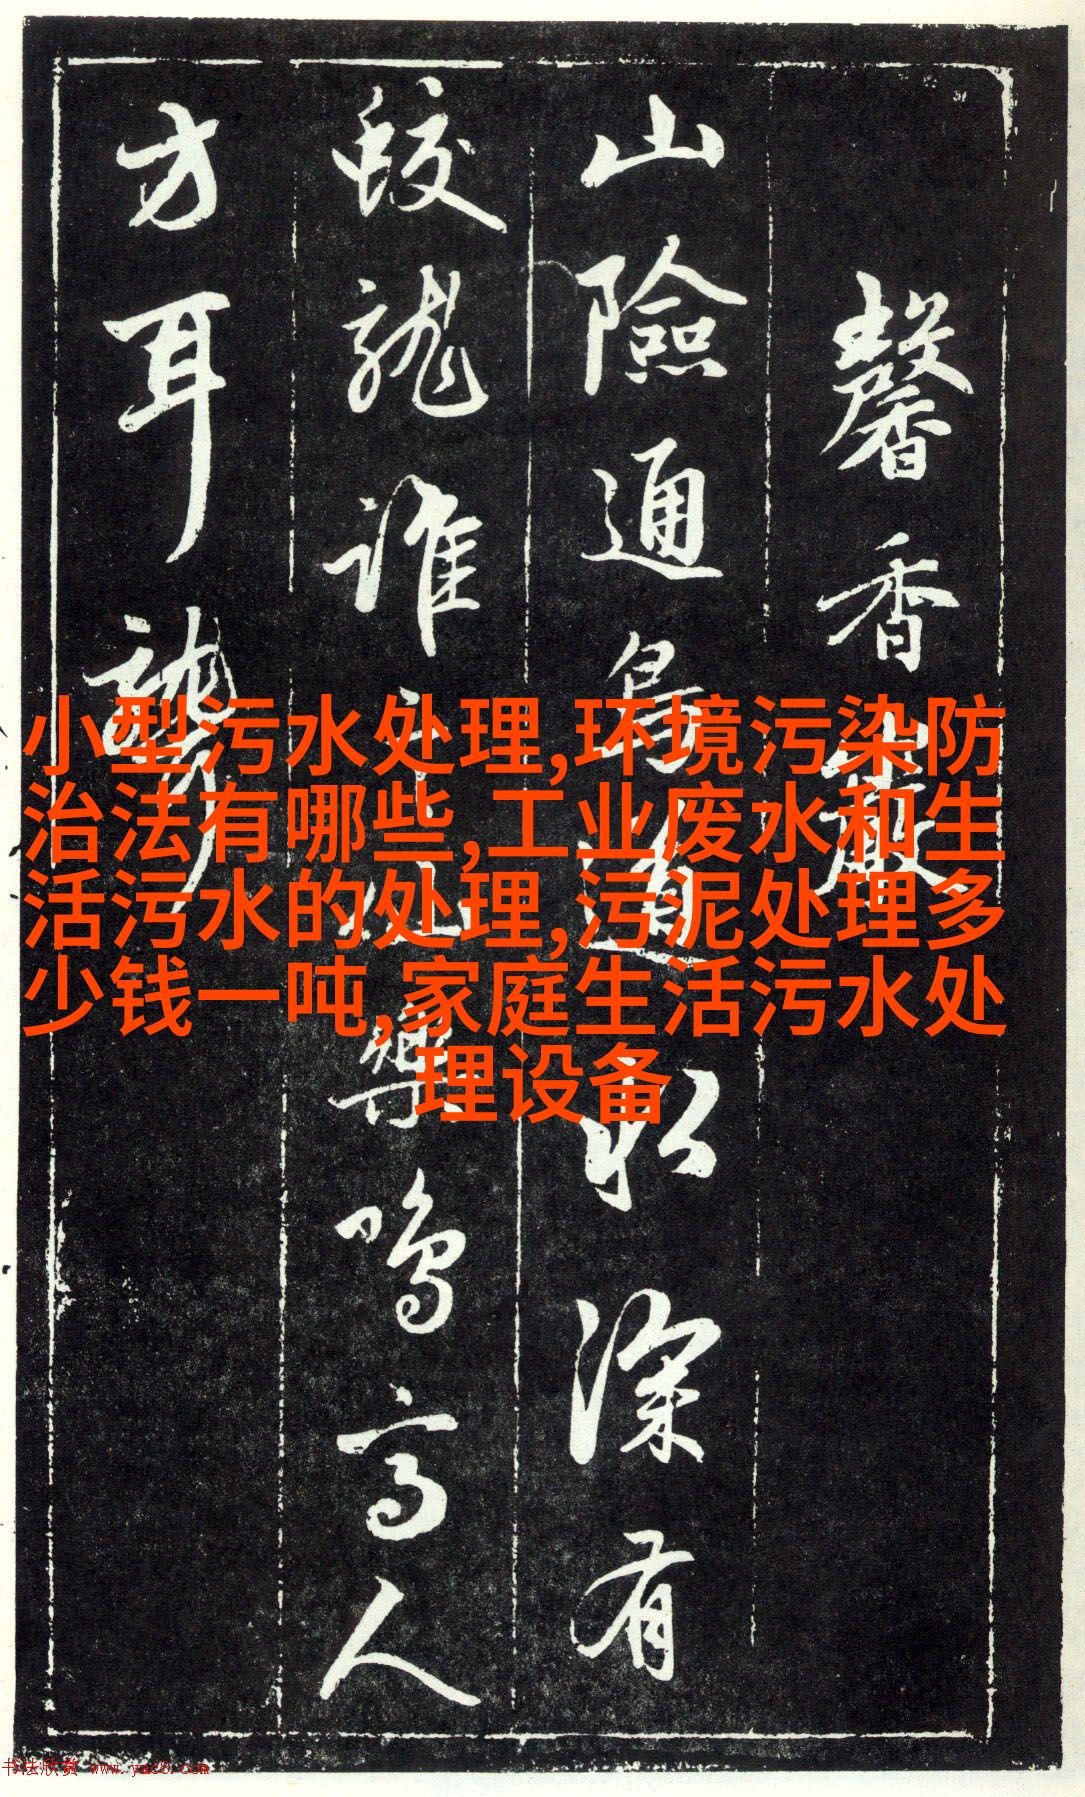 馨香巖
山險通鳥道水深有
蛟龍誰
鳴高人
方耳聾
小型污水处理,环境污染防
治法有哪些,工业废水和生
活污水的处理,污泥处理多
少钱一吨,家庭生活污水处
理设备
书法欣赏 www.yac8.com